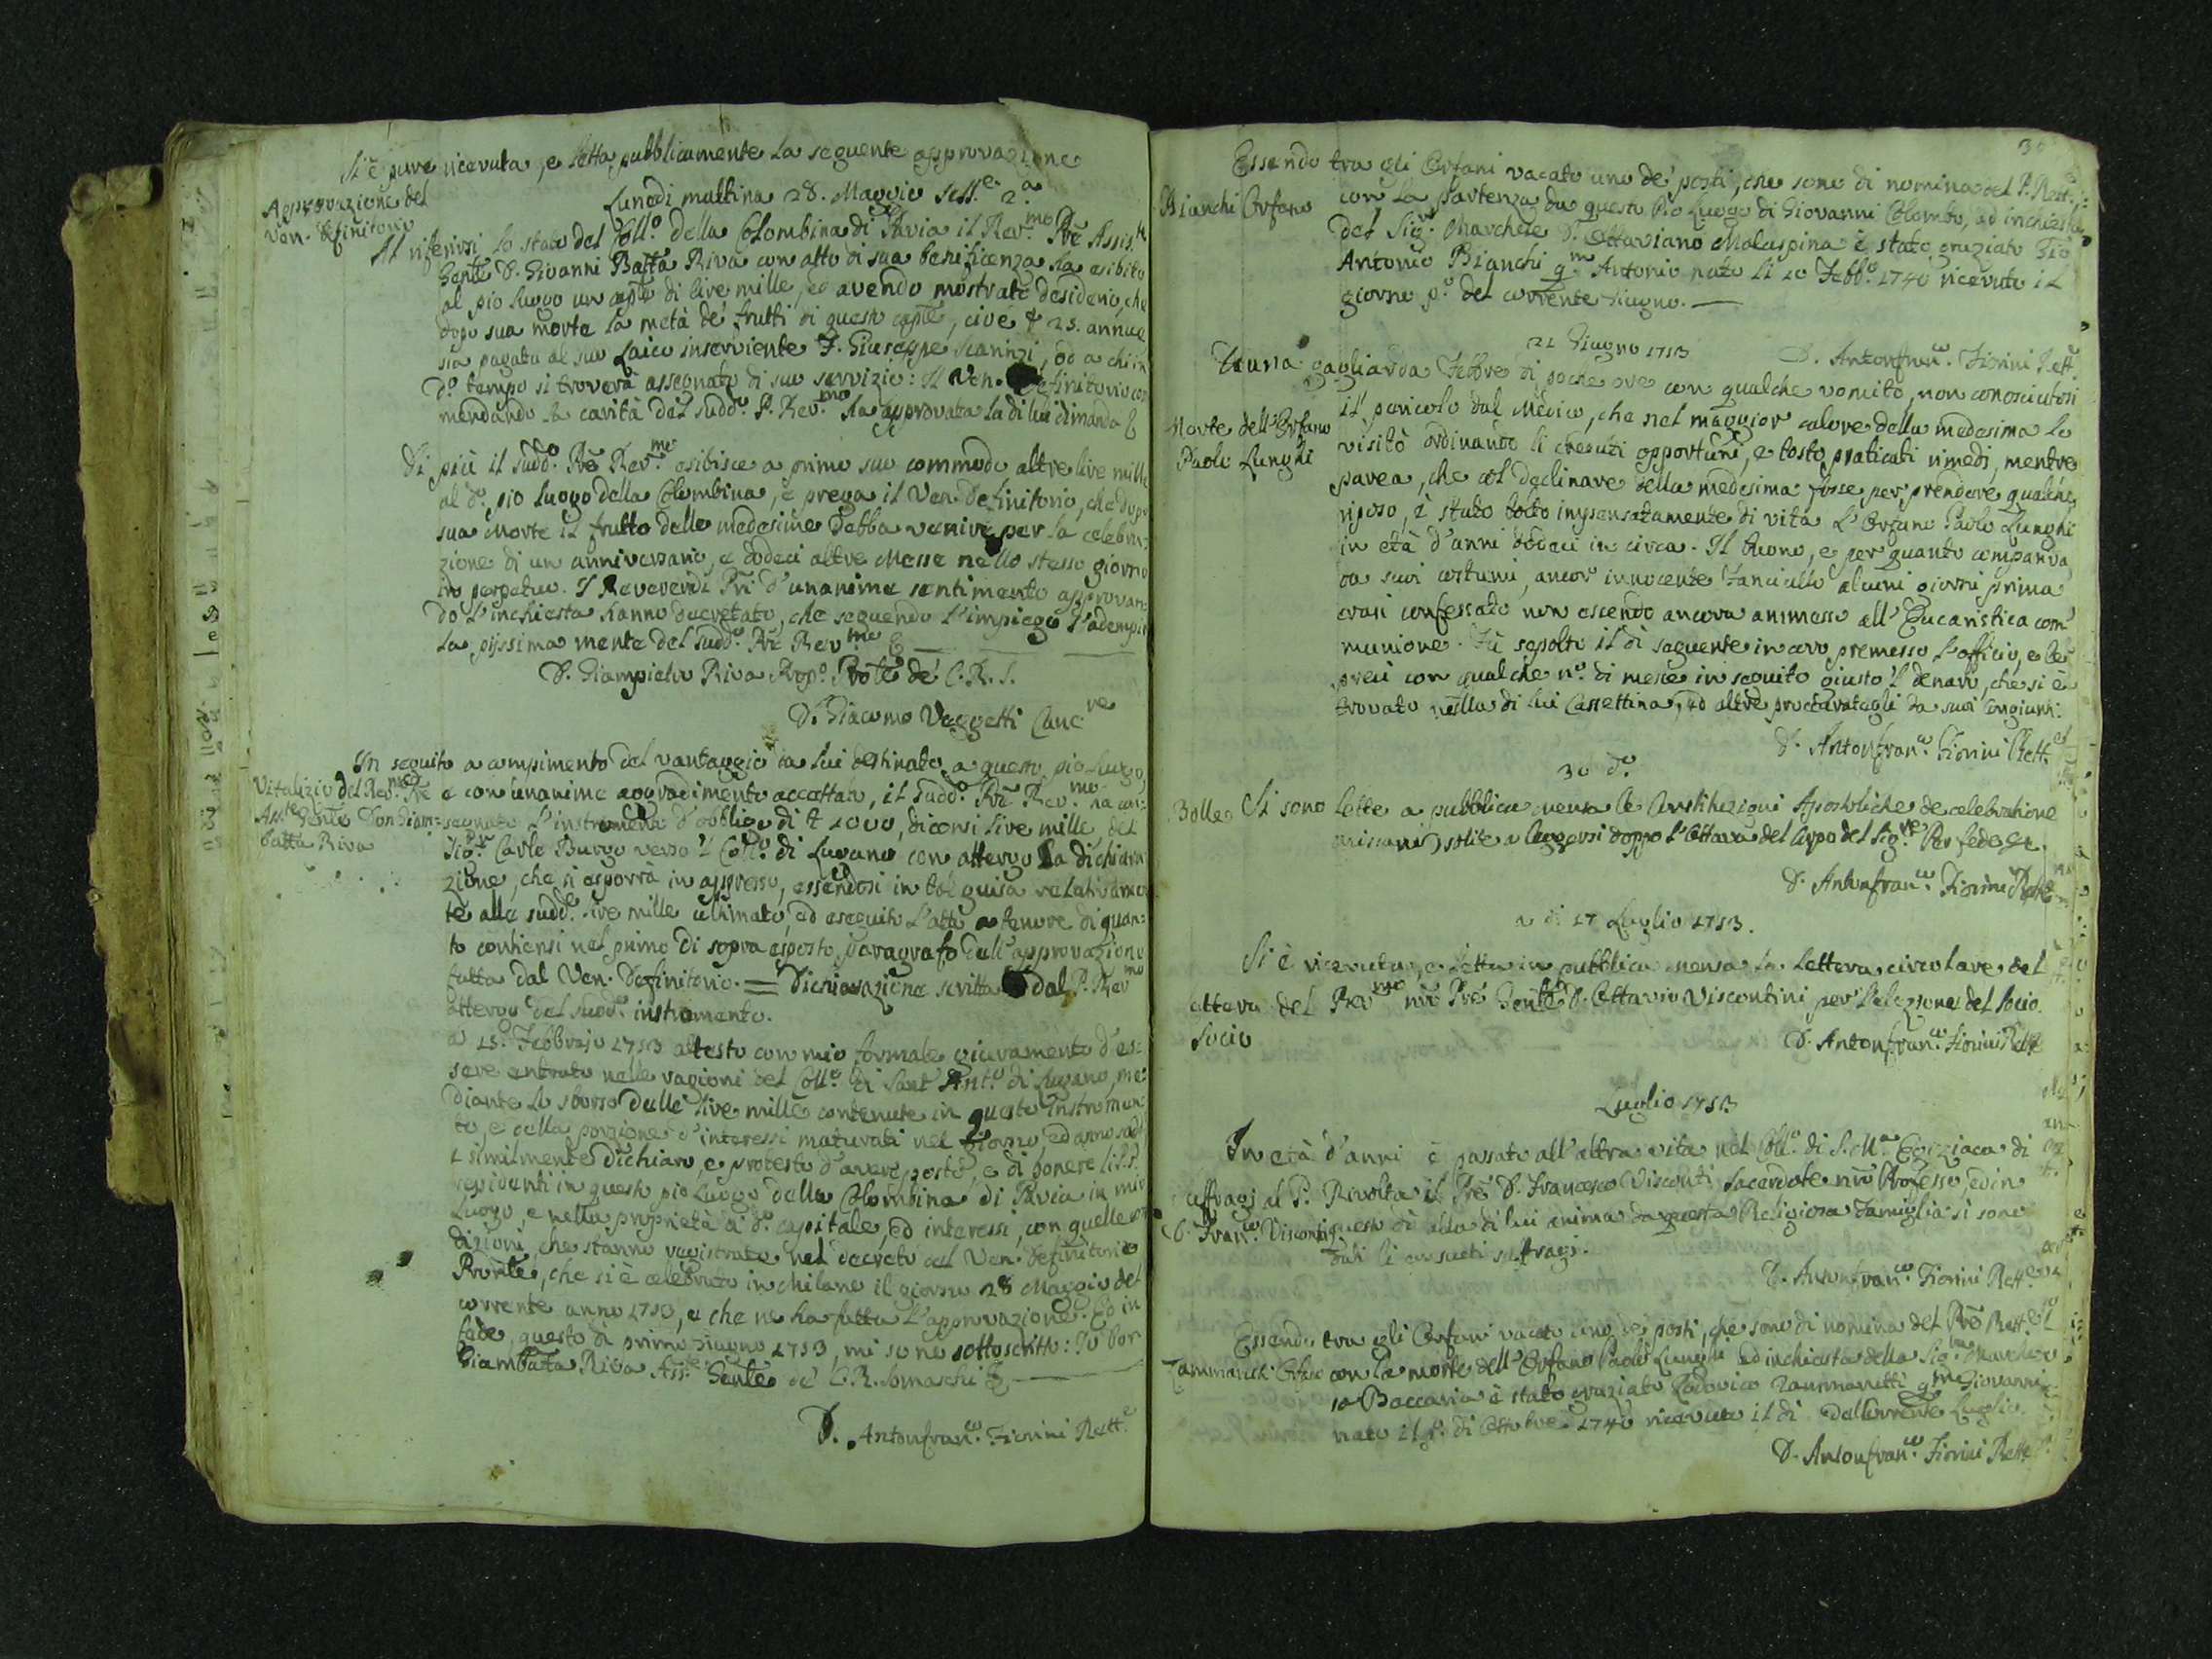 Si è pure ricevuta, e letta pubblicamente la seguente approvazione
Approvazione del
Ven. Definitorio
Lunedi mattina 28. Maggio Sess.e 2.a
Al riferirsi lo stato del Coll.o della Colombina di Pavia il Rev.mo Pre Assis.te
Gente D. Giovanni Batta Riva con atto di sua beneficenza ha esibito
al pio luogo un capte di lire mille, ed avendo mostrato desiderio, che
dopo sua morte la metà de' frutti di questo capte, cioè 25. annue
sia pagata al suo Laico inserviente F. Giuseppe Scarinzi, od a chi in
d.o tempo si troverà assegnato di suo servizio: Il Ven. Definitorio com
mendando la carità del sudd.o P. Rev.mo ha approvata la di lui dimanda &
Di più il sudd.o Pre Rev.mo esibisce a primo suo commodo altre lire mille
al d.o pio luogo della Colombina, e prega il Ven. Definitorio, che dopo
sua morte il frutto delle medesime debba venire per la celebra-
zione di un anniversario, e dodeci altre Messe nello stesso giorno
in perpetuo. I Reverendi Pri d'unanime sentimento approvan-
do l'inchiesta hanno decretato, che seguendo l'impiego s'adempia
la pijssima mente del sudd.o Pre Rev.mo &
D. Giampietro Riva Prop.o Prote de' C.R.S.
D. Giacomo Vaggetti Canc.re
In seguito a compimento del vantaggio da lui destinato a questo pio Luogo,
Vitalizio del Rev.mo Pre
Ass.te Gente Don Giam-
batta Riva
e con unanime aggradimento accettato, il sudd.o Pre Rev.mo ha con-
segnato l'instromento d'obbligo di 1000, dicensi lire mille, del
Sig.r Carlo Burgo verso 'l Coll.o di Lugano con attergo la dichiara-
zione, che si esporrà in appresso, essendosi in tal guisa relativamen-
te alle sudd.e lire mille ultimato, ed eseguito l'atto a tenore di quan-
to contiensi nel primo di sopra esposto paragrafo dell'approvazione
fatta dal Ven. Definitorio. = Dichiarazione scritta dal P. Rev.mo
attergo del sudd.o instromento.
a 15. Febbrajo 1753 attesto con mio formale giuramento d'es-
sere entrato nelle ragioni del Coll.o di Sant'Ant.o di Lugano, me-
diante lo sborso delle lire mille contenute in questo Instromen-
to, e della porzione d'interessi maturati nel giorno, ed anno sudd.
E similmente dichiaro, e protesto d'avere posto, e di ponere li P.P.
residenti in questo pio Luogo della Colombina di Pavia in mio
Luogo, e nella proprietà di d.o capitale, ed interessi, con quelle con
dizioni, che stanno registrate nel decreto del Ven. Definitorio
Pronte, che si è celebrato in Milano il giorno 28 Maggio del
corrente anno 1753, e che ne ha fatta l'approvazione. Ed in
fede, questo di primo Giugno 1753, mi sono sottoscritto: Io Don
Giambatta Riva Ass.te Gente de' C.R. Somaschi &
D. Antonfran.co Fiorini Rett.e
30
Essendo tra gli Orfani vacato uno de' posti, che sono di nomina del P. Rett.e
Bianchi Orfano
con la partenza da questo Pio Luogo di Giovanni Colombo, ad inchiesta
del Sig.r Marchese D. Ottaviano Malaspina è stato graziato Gio
Antonio Bianchi q.m Antonio nato li 10 Febb.o 1740 ricevuto il
giorno p.o del corrente Giugno.
21 Giugno 1753
D. Antonfran.co Fiorini Rett.e
Da una gagliarda Febbre di poche ore con qualche vomito, non conosciutosi
il pericolo dal Medico, che nel maggior calore della medesima lo
Morte dell'Orfano
Paolo Lunghi
visitò ordinando li creduti opportuni, e tosto praticati rimedj, mentre
parea, che col declinare della medesima fosse per prendere qualche
riposo, è stato tolto impensatamente di vita l'Orfano Paolo Lunghi
in età d'anni dodeci in circa. Il buono, e per quanto compariva
da suoi costumi, ancor innocente Fanciullo alcuni giorni prima
erasi confessato non essendo ancora ammesso all'Eucaristica com
munione. Fù sepolto il dì seguente in coro premesso l'officio, e le
preci con qualche n.o di messe in seguito giusto 'l denaro, che si è
trovato nella di lui Cassettina, ed altre procuratagli da suoi Congiunti.
D. Antonfran.co Fiorini Rett.e
30 d.o
Bolle
Si sono lette a pubblica mensa le Constituzioni Apostoliche de celebratione
missarum solite a leggersi doppo l'Ottava del Corpo del Sig.re Per fede &c.
D. Antonfran.co Fiorini Rett.e
a di 17 Luglio 1753.
Si è ricevuta, e letta in pubblica mensa la Lettera circolare del
ettera del
Socio
Rev.mo nro Pre Gente D. Ottavio Viscontini per l'elezione del Socio
D. Antonfran.co Fiorini Rett.e
Luglio 1753
In età d'anni è passato all'altra vita nel Coll.o di S. M.a Egiziaca di
uffragj al P.
D. Fran.co Visconti
Rivolta il Pre D. Francesco Visconti Sacerdote nro Professo, ed in
questo dì alla di lui anima da questa Religiosa Famiglia si sono
dati li consueti suffragj.
D. Antonfran.co Fiorini Rett.e
Essendo tra gli Orfani vacato uno dei posti, che sono di nomina del Pre Rett.e
con la morte dell'Orfano Paolo Lunghi ad inchiesta della Sig.ra Marche
sa Beccaria è stato graziato Lodovico Zammaretti q.m Giovanni
nato il p.o di Ottobre 1740 ricevuto il di del corrente Luglio.
D. Antonfran.co Fiorini Rett.e